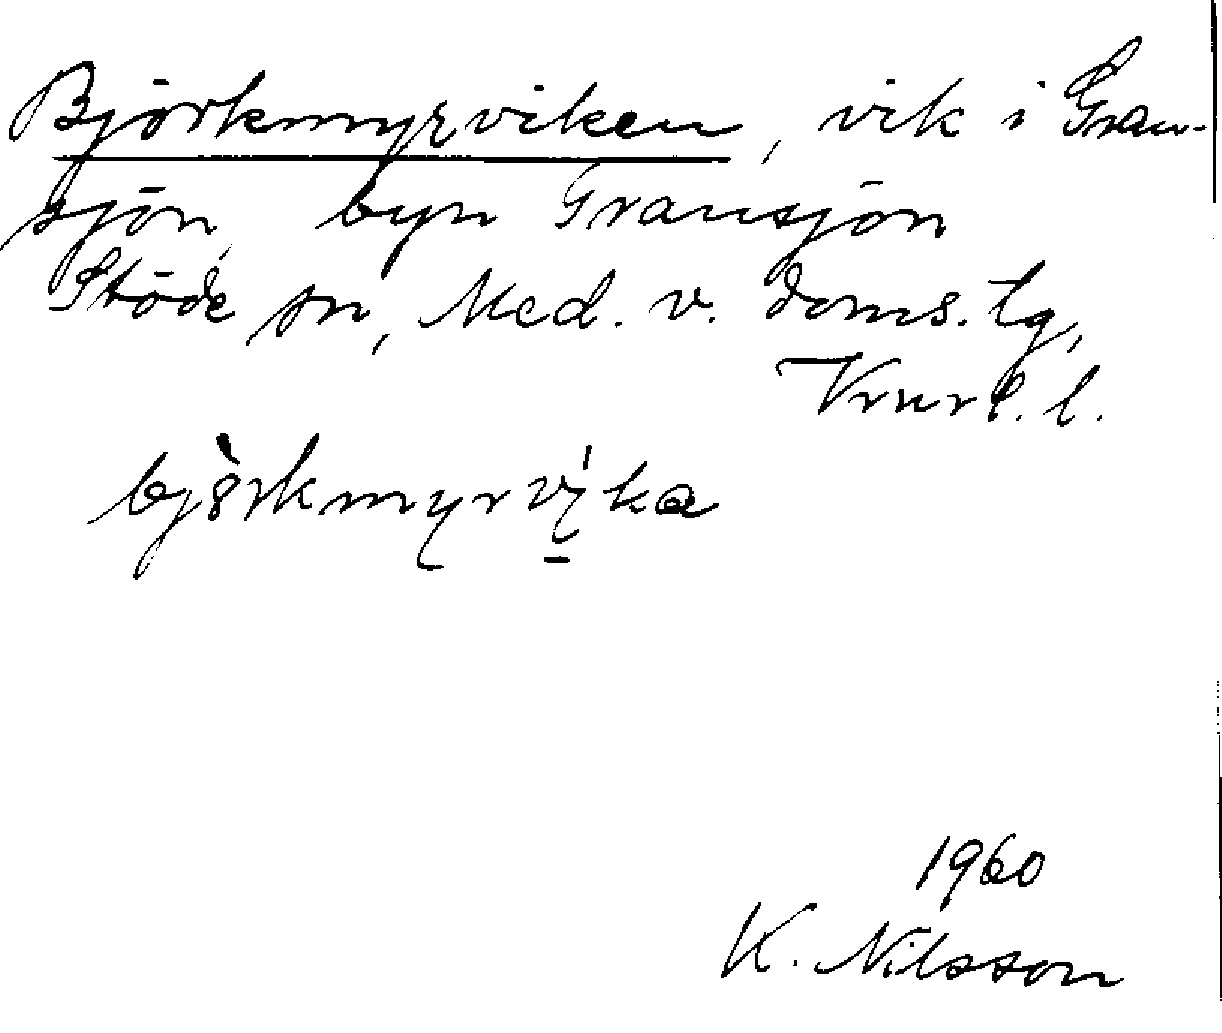 Björkmyrviken, vik i Gran-
sjön, byn Gransjön
Stöde sn, Med. v. doms. tg,
Vrnrl. l.
björkmyrvika
1960
K. Nilsson